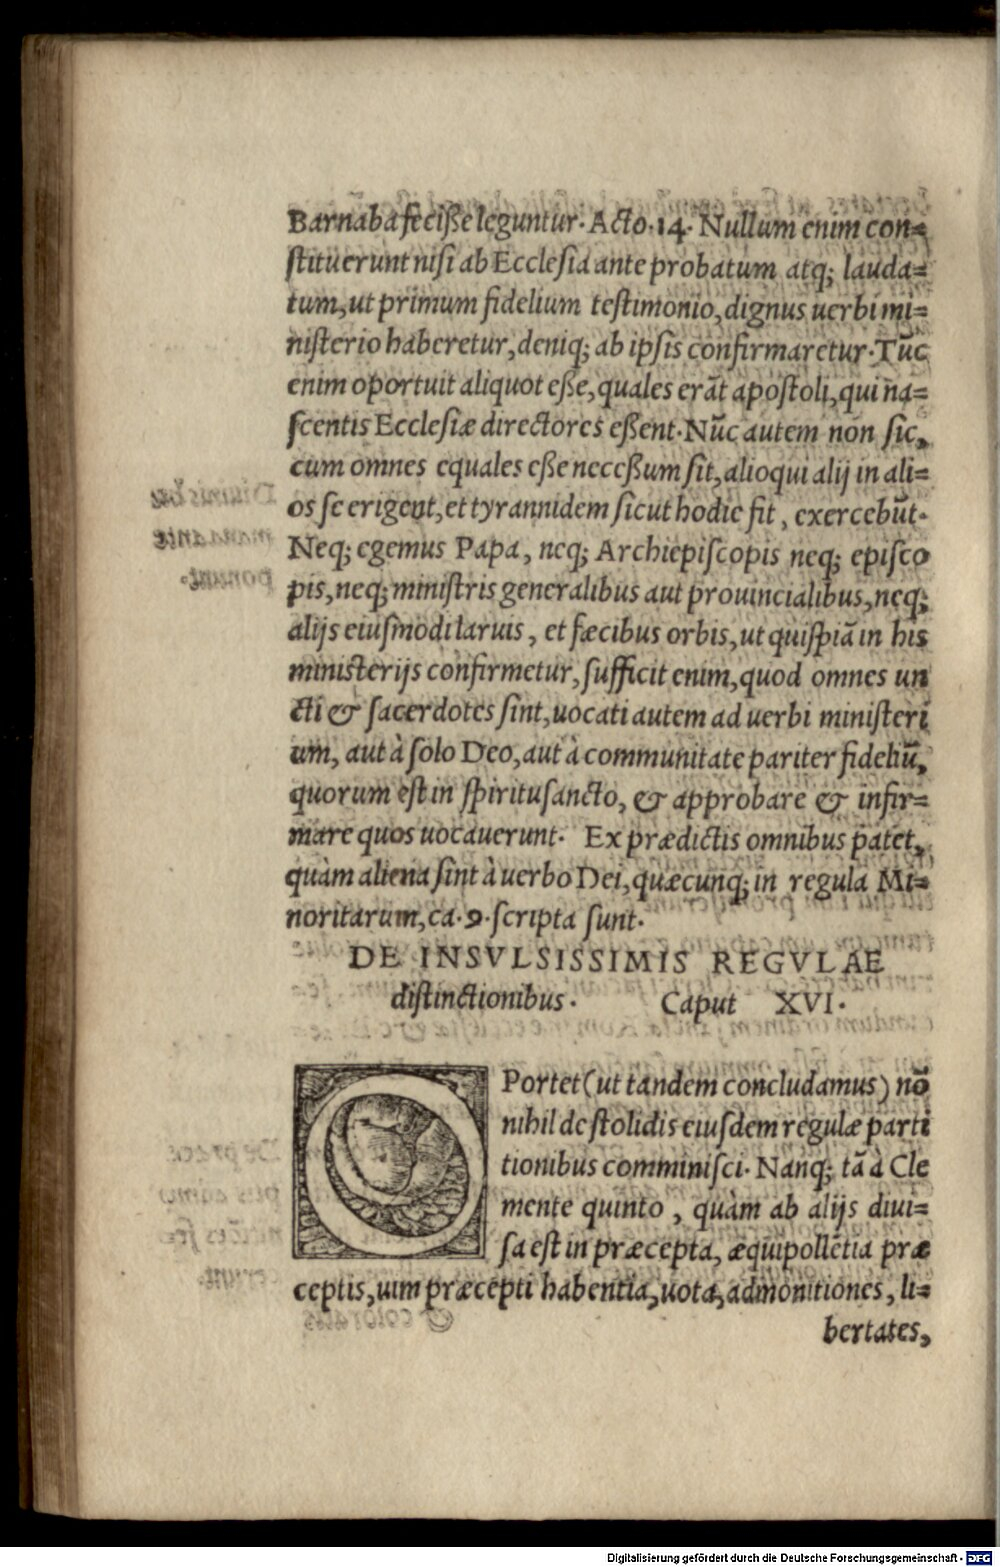 Barnaba feciſſe leguntur. Acto. 14. Nullum enim con=
ſtituerunt niſi ab Eccleſia ante probatum atq; lauda=
tum, ut primum fidelium teſtimonio, dignus uerbi mi=
niſterio haberetur, deniq; ab ipſis confirmaretur. Tūc
enim oportuit aliquot eſſe, quales erāt apoſtoli, qui na=
ſcentis Eccleſiæ directores eſſent. Nūc autem non ſic,
cum omnes equales eſſe neceſſum ſit, alioqui alij in ali=
os ſe erigent, et tyrannidem ſicut hodie fit, exercebūt.
Neq; egemus Papa, neq; Archiepiſcopis neq; epiſco
pis, neq; miniſtris generalibus aut prouincialibus, neq;
alijs eiuſmodi laruis, et fæcibus orbis, ut quiſpiā in his
miniſterijs confirmetur, ſufficit enim, quod omnes un
cti & ſacerdotes ſint, uocati autem ad uerbi miniſteri
um, aut à ſolo Deo, aut à communitate pariter fideliū,
quorum eſt in ſpirituſancto, & approbare & infir=
mare quos uocauerunt. Ex prædictis omnibus patet,
quàm aliena ſint à uerbo Dei, quæcunq; in regula Mi=
noritarum, ca. 9. ſcripta ſunt.
DE INSVLSISSIMIS REGVLAE
diſtinctionibus. Caput XVI.
OPortet (ut tandem concludamus) nō
nihil de ſtolidis eiuſdem regulæ parti
tionibus comminiſci. Nanq; tā à Cle
mente quinto, quàm ab alijs diui=
ſa eſt in præcepta, æquipollētia præ
ceptis, uim præcepti habentia, uota, admonitiones, li=
bertates,
Digitalisierung gefördert durch die Deutsche Forschungsgemeinschaft - DFG